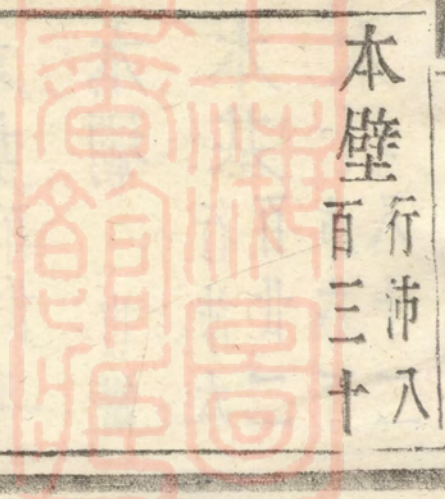 本壁
行沛八
百三十
上海圖
書館藏